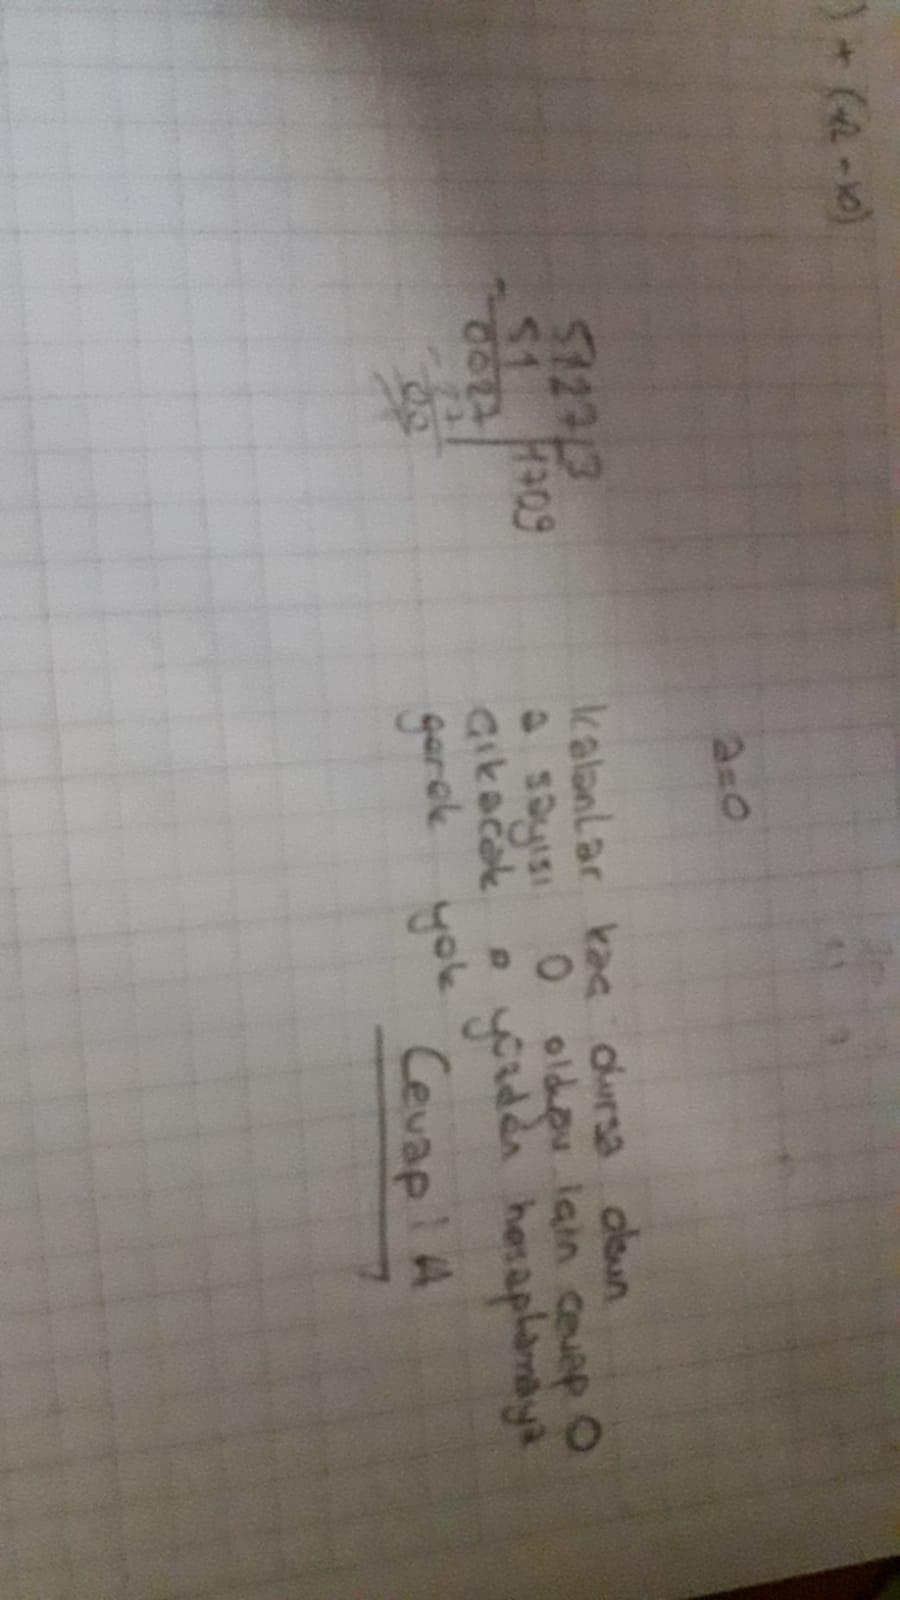 ) + (42 - 10)
a=0
5127 | 3
- 51 | 1709
0027
- 27
00
kalanlar kaç olursa olsun
a sayısı 0 olduğu için cevap 0
çıkacak o yüzden hesaplamaya
gerek yok Cevap: A